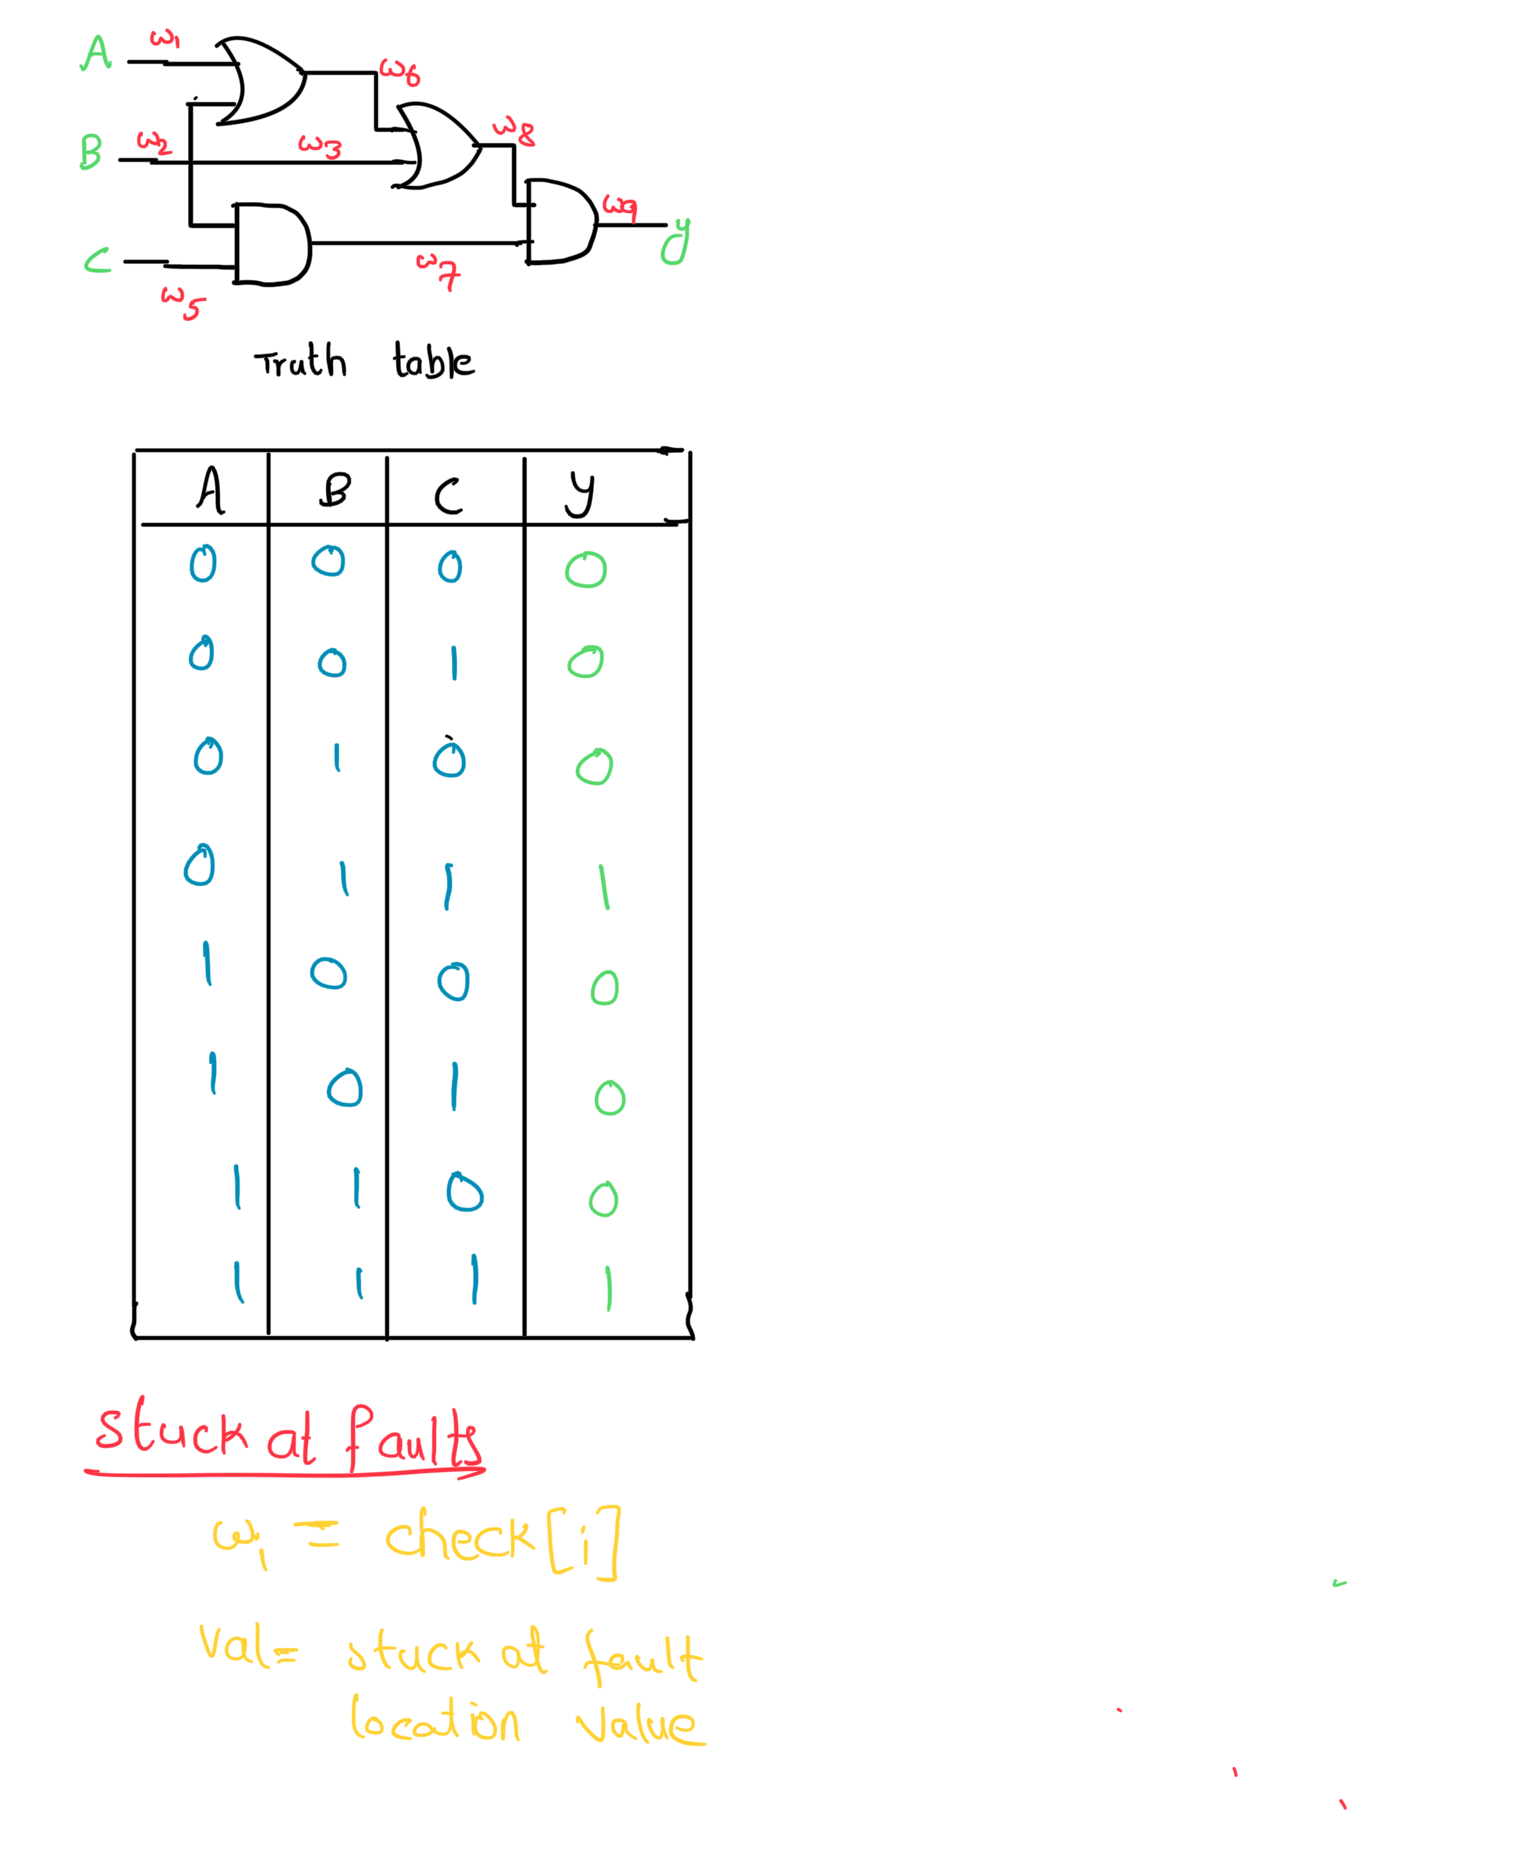 A ω1
ω6
B ω2 ω3 ω8
ω9 y
C ω7
ω5
Truth table
A B C y
0 0 0 0
0 0 1 0
0 1 0 0
0 1 1 1
1 0 0 0
1 0 1 0
1 1 0 0
1 1 1 1
stuck at faults
ωi = check[i]
Val= stuck at fault
location value